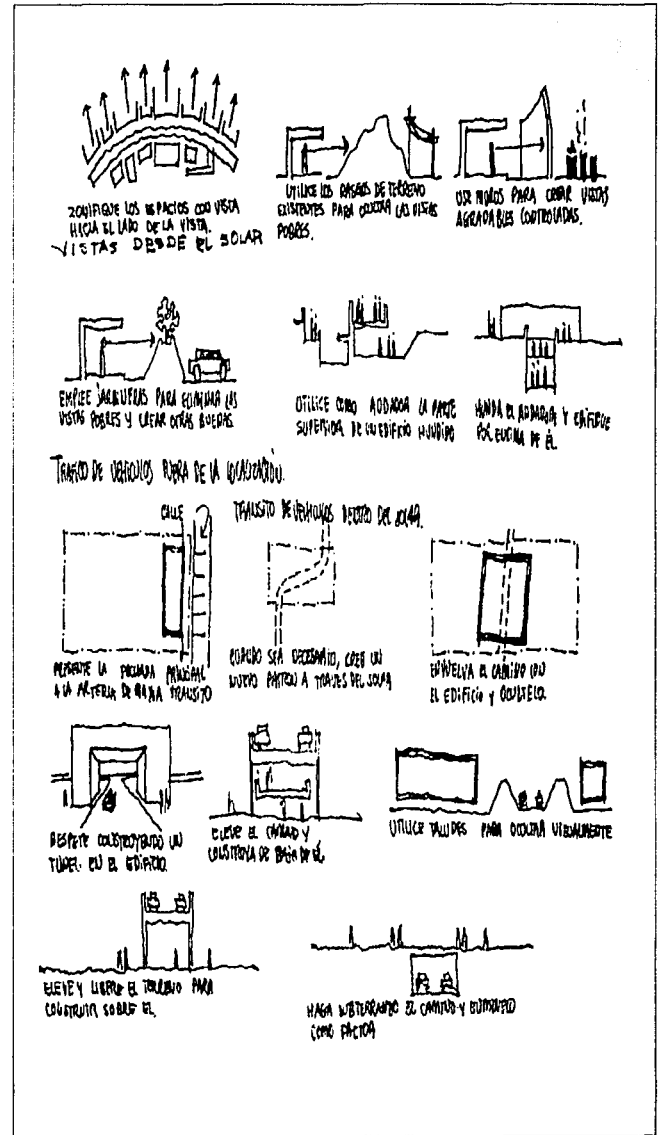 ZONIFIQUE LOS ESPACIOS CON VISTA
HACIA EL LADO DE LA VISTA.
VISTAS DESDE EL SOLAR
UTILICE LOS RASGOS DE TERRENO
EXISTENTES PARA OCULTAR LAS VISTAS
POBRES.
USE MUROS PARA CREAR VISTAS
AGRADABLES CONTROLADAS.
EMPLEE JARDINERAS PARA ELIMINAR LAS
VISTAS POBRES Y CREAR OTRAS BUENAS.
UTILICE COMO ANDADOR LA PARTE
SUPERIOR DE UN EDIFICIO HUNDIDO
HUNDA EL ANDADOR Y EDIFIQUE
POR ENCIMA DE ÉL.
TRAFICO DE VEHICULOS FUERA DE LA LOCALIZACIÓN.
CALLE
TRANSITO DE VEHICULOS DENTRO DEL SOLAR.
PRESENTE LA FACHADA PRINCIPAL
A LA ARTERIA DE TRANSITO
CUANDO SEA NECESARIO, CREE UN
NUEVO PATRON A TRAVES DEL SOLAR
ENVUELVA EL CAMINO CON
EL EDIFICIO Y OCULTELO.
RESPETE CONSTRUYENDO UN
TUNEL EN EL EDIFICIO.
ELEVE EL CAMINO Y
CONSTRUYA DE BAJO DE ÉL.
UTILICE TALUDES PARA OCULTAR VISUALMENTE
ELEVE Y LIBERE EL TERRENO PARA
CONSTRUIR SOBRE EL.
HAGA SUBTERRANEO EL CAMINO Y ELIMINELO
COMO FACTOR